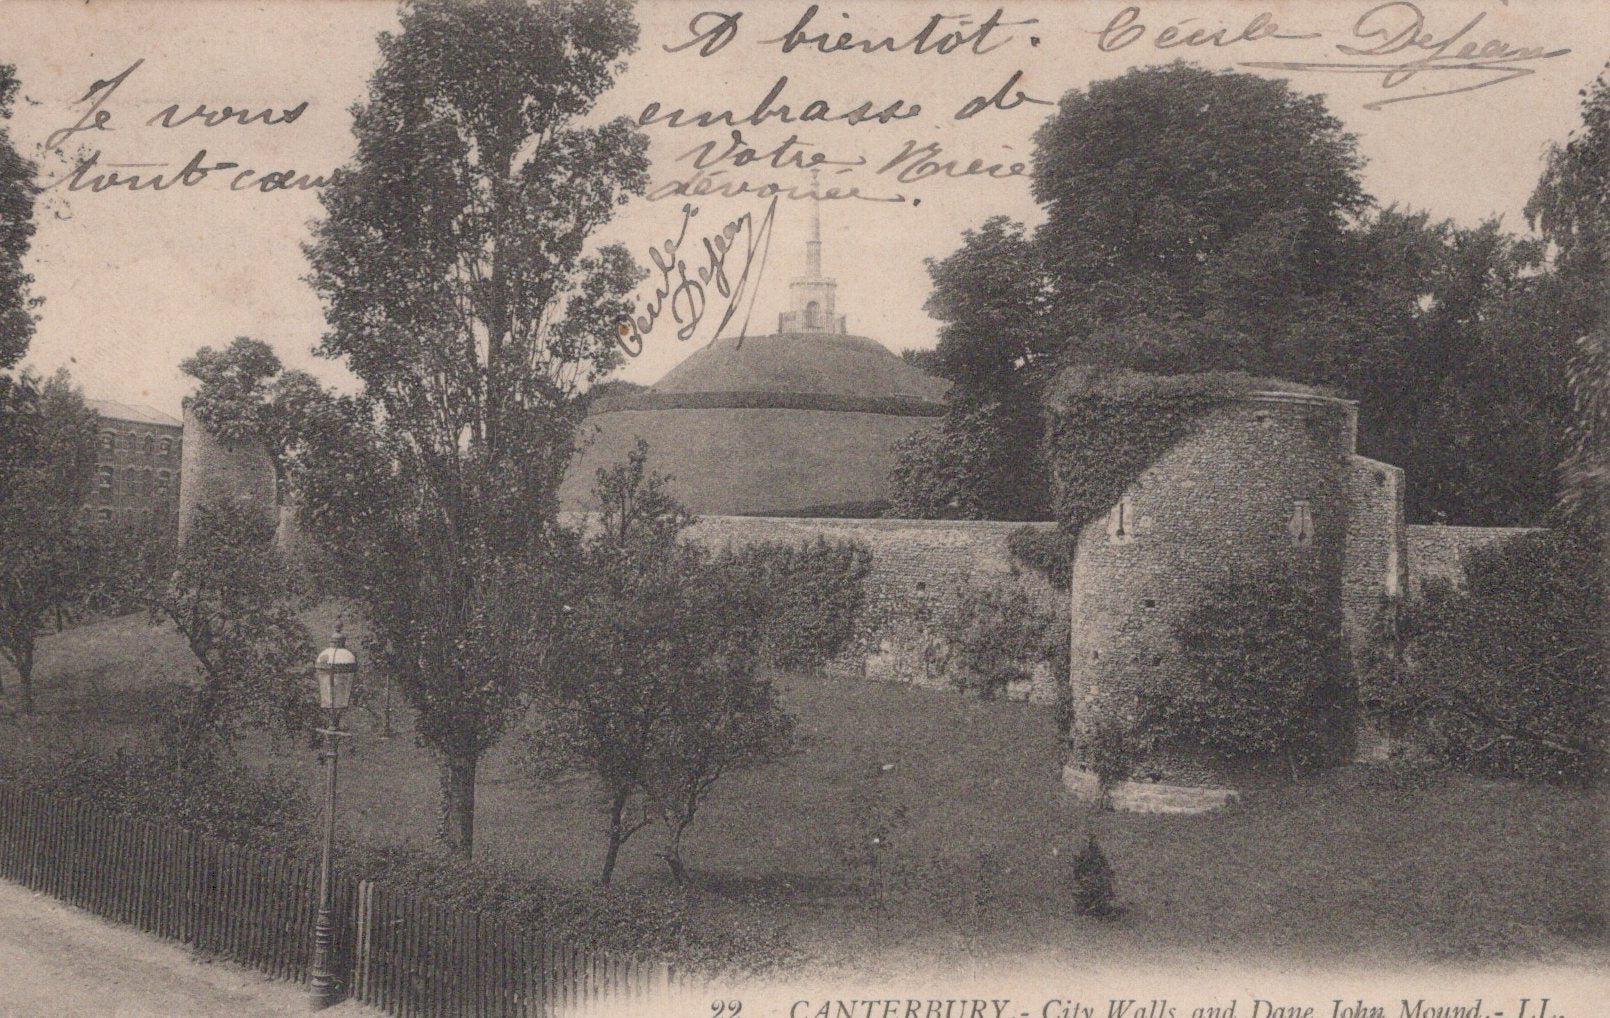 A bientôt. Cécile Dejean
Je vous embrasse de
tout cœur Votre Nièce
dévouée.
Cécile Dejean
22 CANTERBURY.- City Walls and Dane John Mound.- LL.